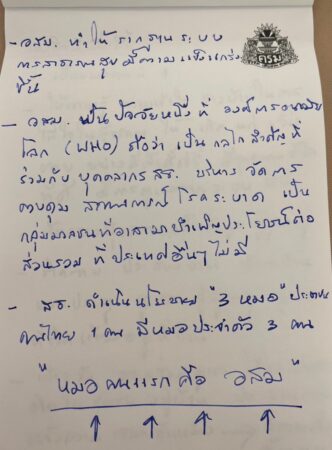 - อสม. ทำให้ รากฐาน ระบบ
การสาธารณสุข มีความแข็งแกร่ง
ขึ้น
ครม
- อสม. เป็น ปัจจัยหนึ่ง ที่ องค์การอนามัย
โลก (WHO) ถือว่า เป็น กลไก สำคัญ ที่
ร่วมกับ บุคลากร สธ. บริหาร จัดการ
ควบคุม สถานการณ์ โรคระบาด เป็น
กลุ่มมวลชนที่อาสามาบำเพ็ญประโยชน์ต่อ
ส่วนรวม ที่ ประเทศอื่นๆ ไม่มี
- สธ. ดำเนินนโยบาย "3 หมอ" ประชาชน
คนไทย 1 คน มีหมอประจำตัว 3 คน
"หมอคนแรก คือ อสม"